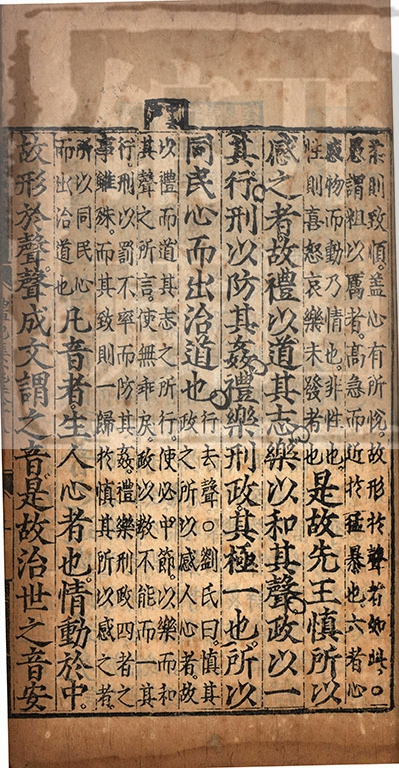 柔則致順。盖心有所悅。故形扵聲者如此。〇
愚謂粗以厲者。高急而近扵猛暴也。六者心
感物而動乃情也。非性也。
性則喜怒哀樂未發者也
是故先王慎所以
感之者。故禮以道其志。樂以和其聲。政以一
其行。刑以防其姦。禮樂刑政。其極一也。所以
同民心而出治道也。
行去聲〇劉氏曰。慎其
政之所以感人心者。故
以禮而道其志之所行。使必中節。以樂而和
其聲之所言。使無乖戾。政以教不能而一其
行。刑以罰不率而防其姦。禮樂刑政四者之
事雖殊。而其致則一歸扵慎其所以感之者。
所以同民心
而出治道也
凡音者。生人心者也。情動於中。
故形於聲。聲成文謂之音。是故治世之音安